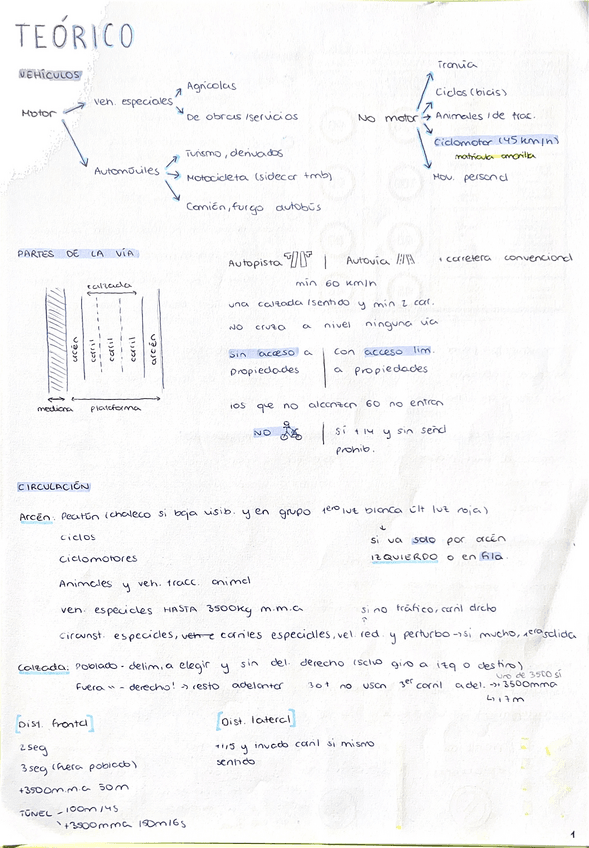 TEÓRICO
VEHÍCULOS
Motor
ven. especiales
Agrícolas
De obras/servicios
Automóviles
Turismo, derivados
Motocicleta (sidecar tmb)
Camión, furgo autobús
No motor
Tranvía
Ciclos (bicis)
Animales / de trac.
Ciclomotor (45 km/h)
matrícula amarilla
Mov. personal
PARTES DE LA VÍA
calzada
arcén
carril
carril
carril
arcén
mediana
plataforma
Autopista | Autovía • carretera convencional
min 60 km/h
una calzada/sentido y min 2 car.
NO cruza a nivel ninguna vía
sin acceso a propiedades
con acceso lim. a propiedades
los que no alcanzan 60 no entran
NO
Sí +14 y sin señal prohib.
CIRCULACIÓN
Arcén: Peatón (chaleco si baja visib. y en grupo 1ero luz blanca últ luz roja)
si va solo por arcén
IZQUIERDO o en fila.
Ciclos
Ciclomotores
Animales y veh. tracc. animal
ven. especiales HASTA 3500kg m.m.a
si no tráfico, carril drcho
circunst. especiales, carriles especiales, vel. red. y perturbo → si mucho, 1era salida
Calzada: Poblado - delim, a elegir y sin del. derecho (salvo giro a izq o destino)
Fuera " - derecho! → resto adelantar 3 o + no usan 3er carril adel. → +3500mma
uno de 3500 sí
+7m
[Dist. frontal]
2seg
3seg (fuera poblado)
+3500m.m.a 50m
TÚNEL - 100m/4s
+3500mma 150m/6s
[Dist. lateral]
+1,5 y invado carril si mismo
sentido
1